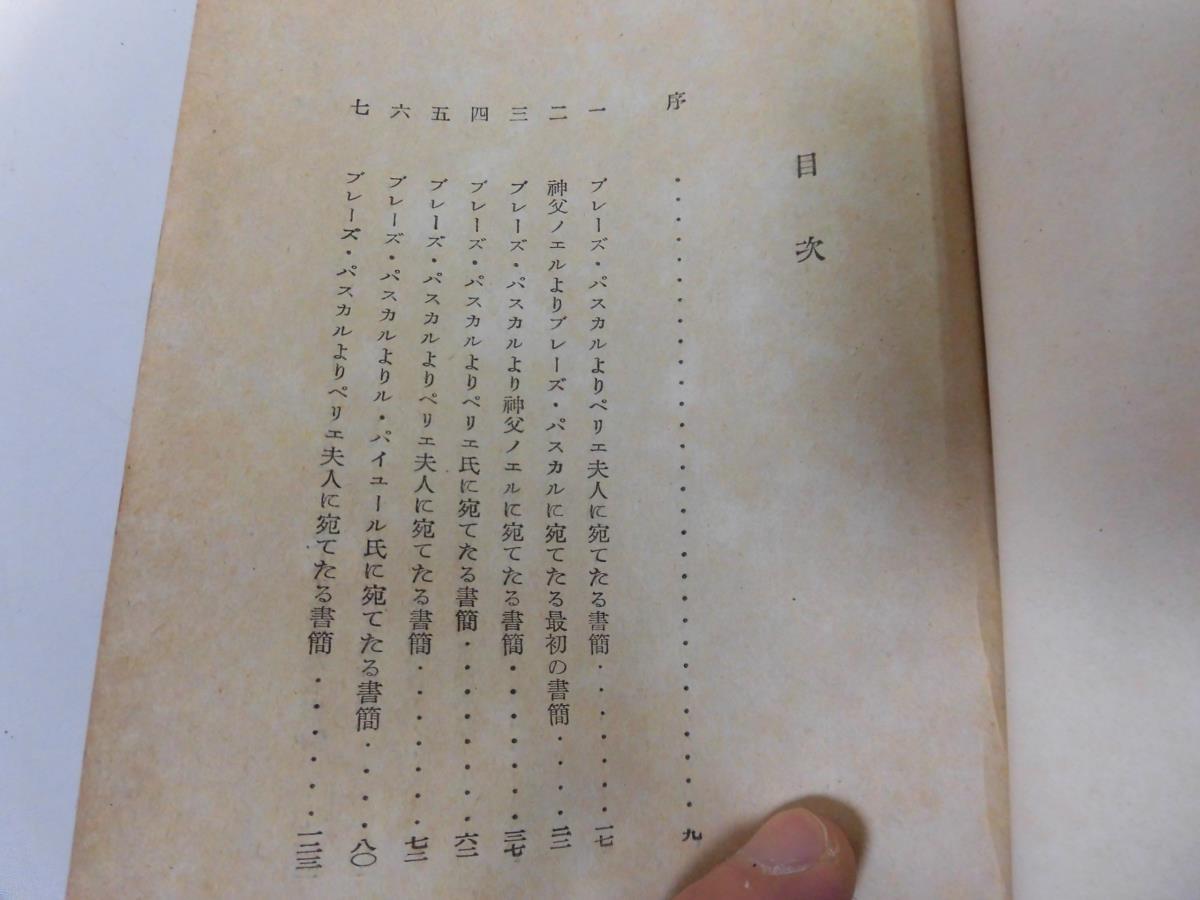 目次
序・・・・・・・・・・・・・・・・・・・・・・・・九
一 ブレーズ・パスカルよりペリエ夫人に宛てたる書簡・・・・・・・一七
二 神父ノエルよりブレーズ・パスカルに宛てたる最初の書簡・・・・二二
三 ブレーズ・パスカルより神父ノエルに宛てたる書簡・・・・・・・三七
四 ブレーズ・パスカルよりペリエ氏に宛てたる書簡・・・・・・・・六二
五 ブレーズ・パスカルよりペリエ夫人に宛てたる書簡・・・・・・・七二
六 ブレーズ・パスカルよりル・パイユール氏に宛てたる書簡・・・・八〇
七 ブレーズ・パスカルよりペリエ夫人に宛てたる書簡・・・・・・一二三